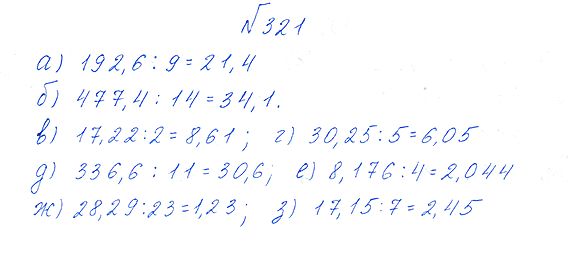 №321
а) 192,6 : 9 = 21,4
б) 477,4 : 14 = 34,1.
в) 17,22 : 2 = 8,61 ; г) 30,25 : 5 = 6,05
д) 336,6 : 11 = 30,6; е) 8,176 : 4 = 2,044
ж) 28,29 : 23 = 1,23 ; з) 17,15 : 7 = 2,45